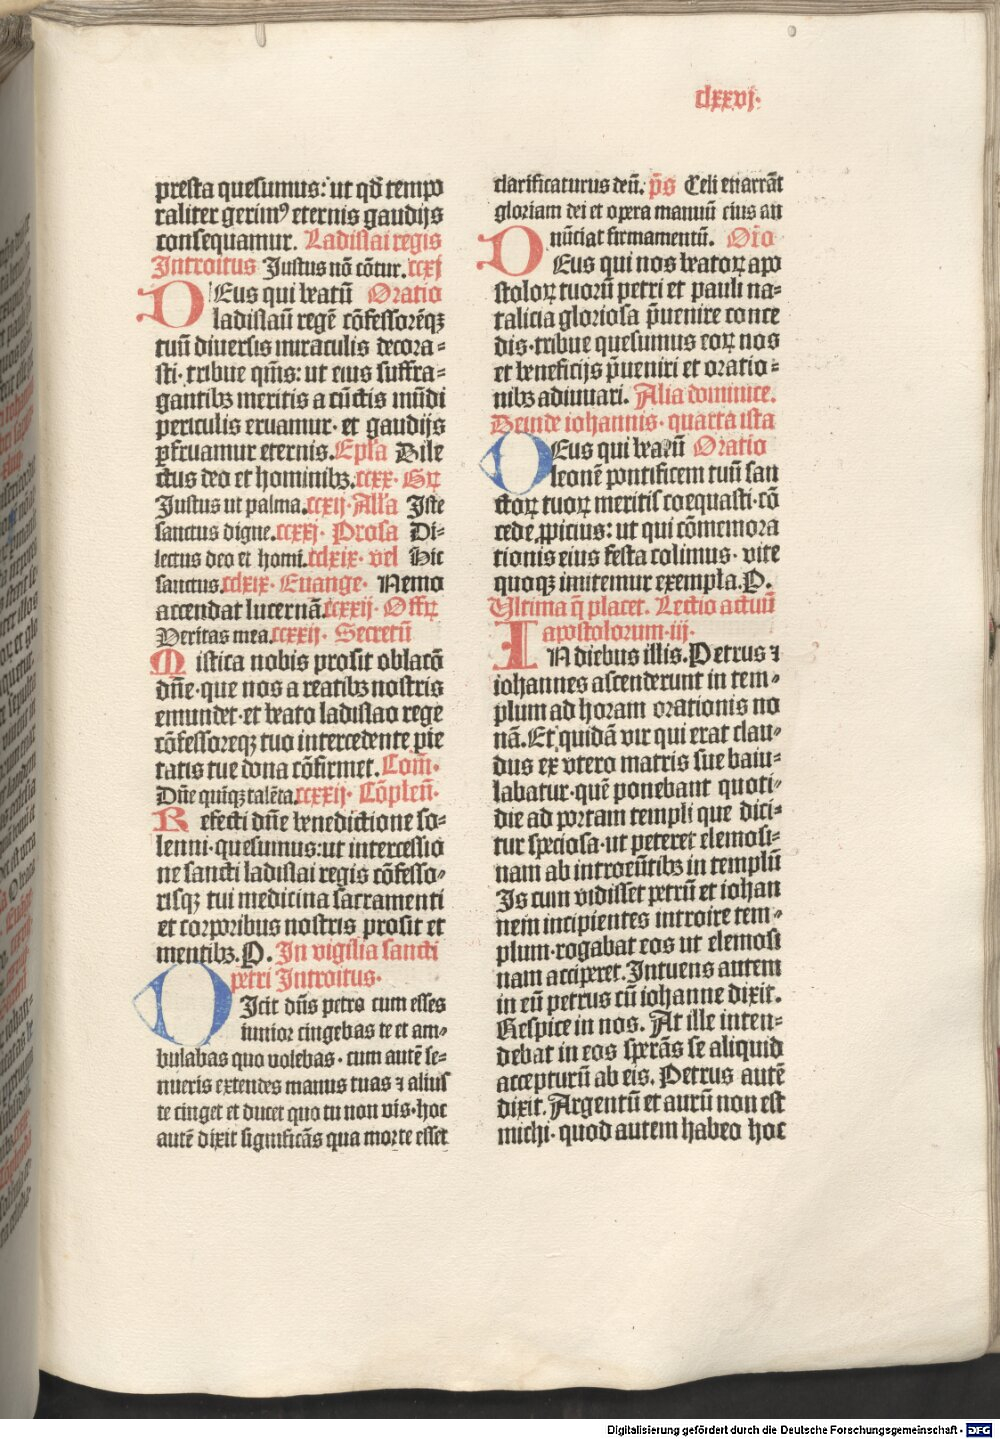 clxxvj·
presta quesumus: ut qđ tempo
raliter gerimꝰ eternis gaudijs
consequamur. Ladislai regis
Introitus Justus nō cōtur. ccxj
DEus qui beatū Oratio
ladislaū regē cōfessorēqꝫ
tuū diuersis miraculis decora⸗
sti· tribue qm̄s: ut eius suffra⸗
gantibꝫ meritis a cūctis mūdi
periculis eruamur· et gaudijs
ꝑfruamur eternis. Epl̄a Dile
ctus deo et hominibꝫ. ccxx· Gꝛ
Justus ut palma. ccxij· All'a Iste
sanctus digne. ccxxj· Prosa Di⸗
lectus deo et homi. cclxix· vel Hic
sanctus. cclxix· Euange· Nemo
accendat lucernā. ccxxij· Offꝝ
Veritas mea. ccxxij· Secretū
Mistica nobis prosit oblacō
dn̄e· que nos a reatibꝫ nostris
emundet· et beato ladislao rege
cōfessoreqꝫ tuo intercedente pie
tatis tue dona cōfirmet. Com̄·
Dn̄e quinqꝫ talēta. ccxxij· Cōplen̄·
Refecti dn̄e benedictione so⸗
lenni· quesumus: ut intercessio
ne sancti ladislai regis cōfesso⸗
risqꝫ tui medicina sacramenti
et corporibus nostris prosit et
mentibꝫ. P. In vigilia sancti
petri Introitus·
DIcit dn̄s petro cum esses
iunior cingebas te et am⸗
bulabas quo volebas· cum autē se⸗
nueris extendes manus tuas ⁊ alius
te cinget et ducet quo tu non vis· hoc
autē dixit significās qua morte esset
clarificaturus deū. p̄s Celi enarrāt
gloriam dei et opera manuū eius an
nūciat firmamentū. Or̄o
DEus qui nos beatoꝝ apo
stoloꝝ tuorū petri et pauli na⸗
talicia gloriosa p̄uenire conce
dis· tribue quesumus eoꝝ nos
et beneficijs p̄ueniri et oratio⸗
nibꝫ adiuuari. Alia dominice.
Deinde iohannis· quarta ista
DEus qui beatū Oratio
leonē pontificem tuū san
ctoꝝ tuoꝝ meritis coequasti· cō
cede ꝓpicius: ut qui cōmemora
tionis eius festa colimus· vite
quoqꝫ imitemur exempla. P.
Ultima q̄ placet. Lectio actuū
apostolorum· iij·
IN diebus illis. Petrus ⁊
iohannes ascenderunt in tem⸗
plum ad horam orationis no
nā. Et quidā vir qui erat clau⸗
dus ex vtero matris sue baiu⸗
labatur· quē ponebant quoti⸗
die ad portam templi que dici⸗
tur speciosa· ut peteret elemosi⸗
nam ab introeūtibꝫ in templū
Is cum vidisset petrū et iohan
nem incipientes introire tem⸗
plum· rogabat eos ut elemosi
nam acciperet. Intuens autem
in eū petrus cū iohanne dixit.
Respice in nos. At ille inten⸗
debat in eos sperās se aliquid
accepturū ab eis. Petrus autē
dixit. Argentū et aurū non est
michi· quod autem habeo hoc
Digitalisierung gefördert durch die Deutsche Forschungsgemeinschaft - DFG